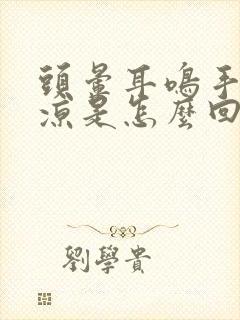 頭暈耳鳴手
涼是怎麼回
劉學貴